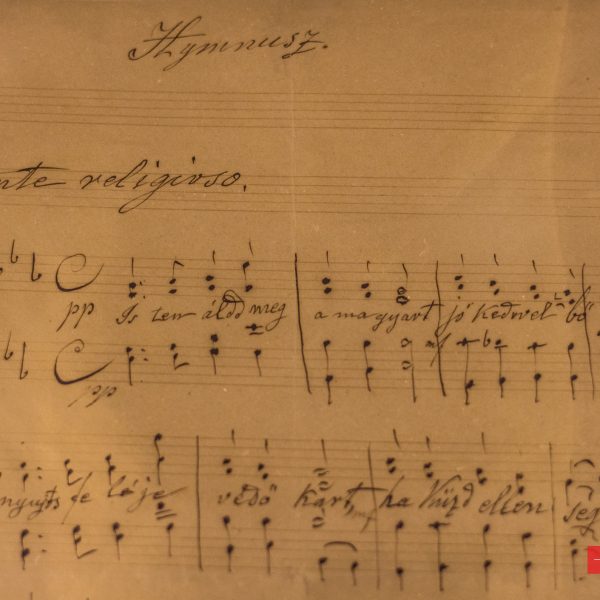 Hymnusz.
nte religioso.
pp Is ten áldd meg a magyart jó kedvvel bő
pp mf
nyujts fe léje védő kart, mf ha küzd ellen